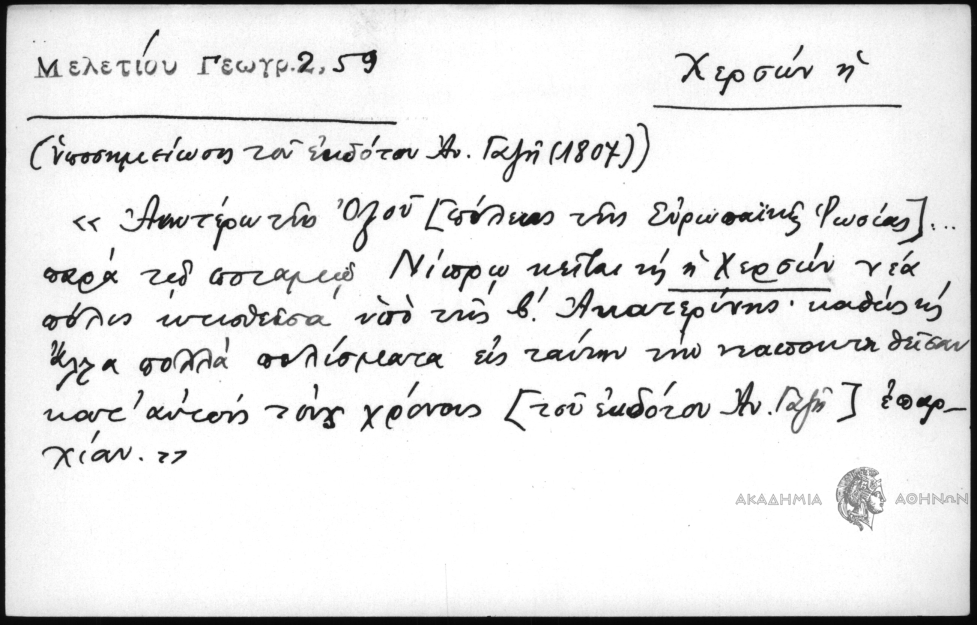 Μελετίου Γεωγρ. 2, 59
Χερσών ἡ
(ὑποσημείωσις τοῦ ἐκδότου Ἀν. Γαζῆ (1807))
« Ἀνωτέρω τῆς Ὀζοῦ [πόλεως τῆς Εὐρωπαϊκῆς Ῥωσίας] ...
παρά τῷ ποταμῷ Νίπρῳ κεῖται κ ἡ Χερσών νέα
πόλις κτισθεῖσα ὑπό τῆς β΄. Αἰκατερίνης · καθώς κ
ἄλλα πολλά πολίσματα εἰς ταύτην τήν κατακτηθεῖσαν
κατ' αὐτούς τούς χρόνους [τοῦ ἐκδότου Ἀν. Γαζῆ] ἐπαρ-
χίαν. »
ΑΚΑΔΗΜΙΑ ΑΘΗΝΩΝ